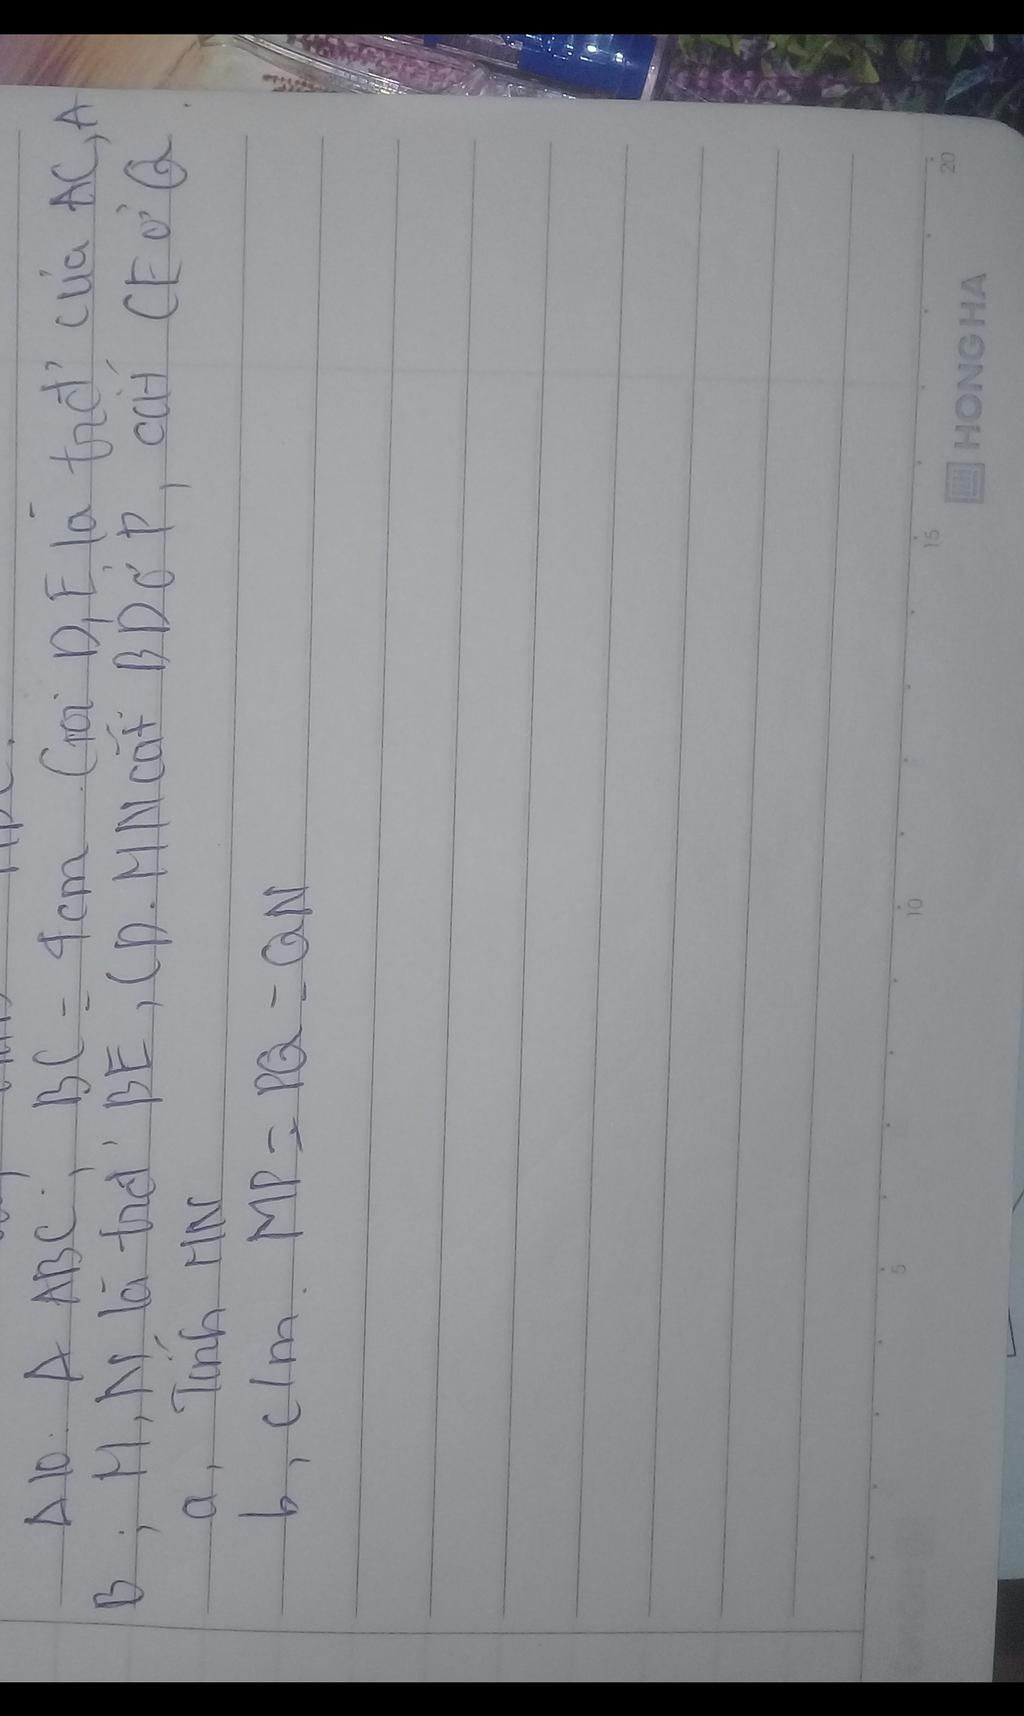 Δ10. Δ ABC, BC = 4cm. Gọi D, E là trđ' của AC, A
B; M, N là trđ' BE, CD. MN cắt BD ở P, cắt CE ở Q
a, Tính MN
b, c/m. MP = PQ = QN
5
10
15
20
HONG HA